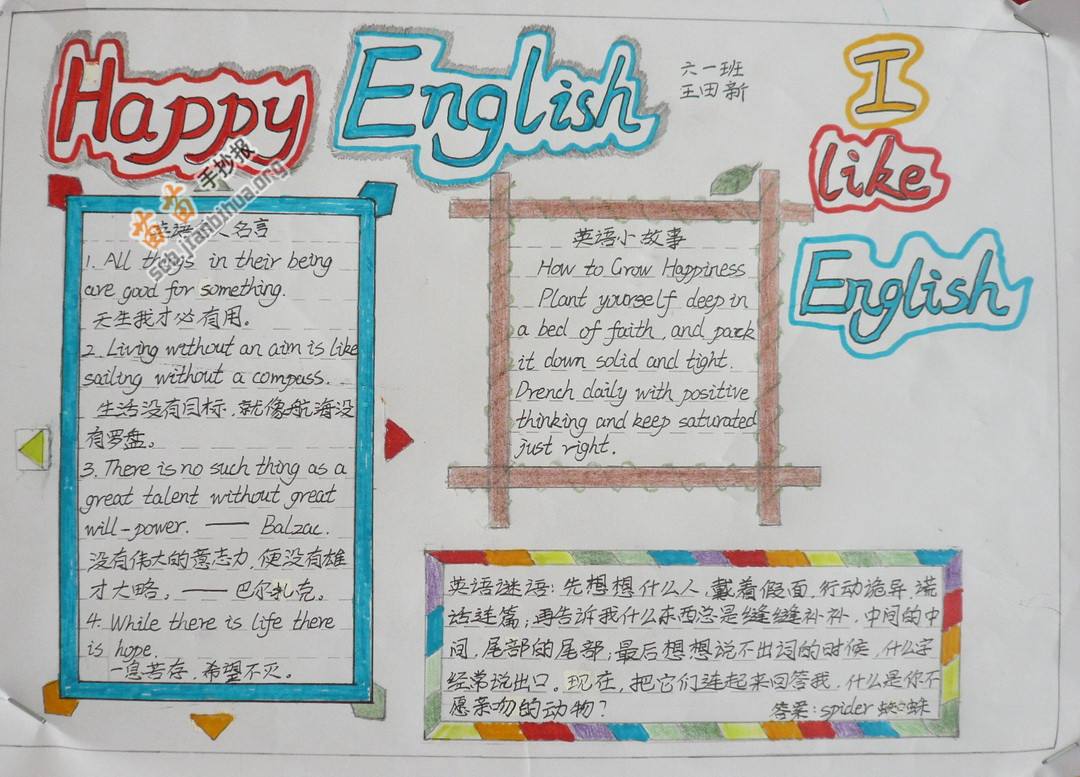 Happy English
六一班
王田新
I
like
English
苗苗手抄报
scb.jianbihua.org
英语 人名言
1. All things in their being
are good for something.
天生我才必有用。
2. Living without an aim is like
sailing without a compass.
生活没有目标，就像航海没
有罗盘。
3. There is no such thing as a
great talent without great
will-power. —— Balzac.
没有伟大的意志力，便没有雄
才大略。——巴尔扎克。
4. While there is life there
is hope.
一息若存，希望不灭。
英语小故事
How to Grow Happiness
Plant yourself deep in
a bed of faith, and pack
it down solid and tight.
Drench daily with positive
thinking and keep saturated
just right.
英语谜语：先想想什么人，戴着假面，行动诡异，谎
话连篇；再告诉我什么东西总是缝缝补补，中间的中
间，尾部的尾部；最后想想说不出词的时候，什么字
经常说出口。现在，把它们连起来回答我，什么是你不
愿亲吻的动物？ 答案：spider 蜘蛛